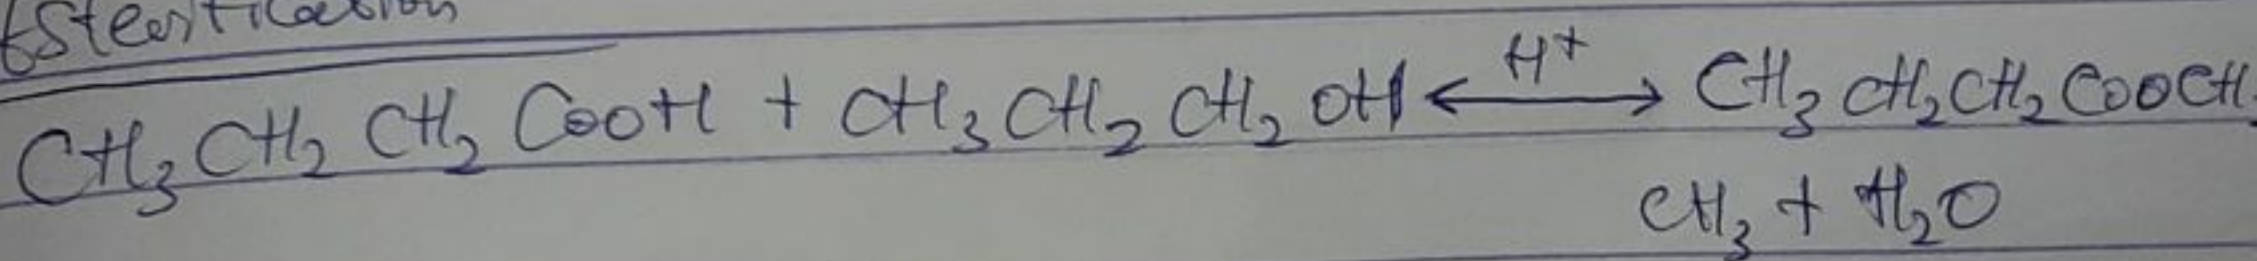 Esterification
CH₃CH₂CH₂COOH + CH₃CH₂CH₂OH ⟷ H⁺ CH₃CH₂CH₂COOCH₂
CH₃ + H₂O